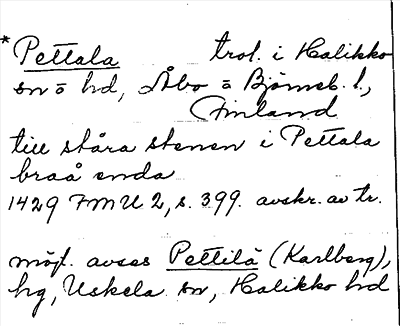 * Pettala trol. i Halikko
sn o hd, Åbo o Björneb. l.,
Finland
till ståra stenen i Pettala
braå enda
1429 FMU 2, s. 399. avskr. av tr.
möjl. avses Pettilä (Karlberg),
hg, Uskela sn, Halikko hd